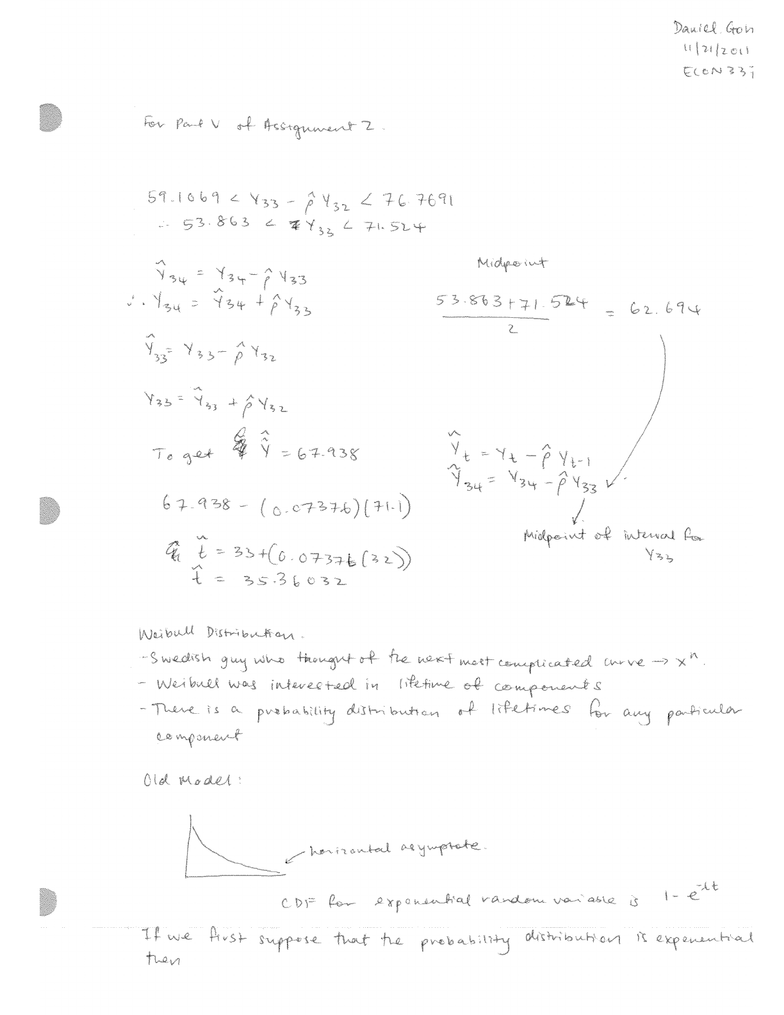 Daniel Goh
11/21/2011
ECON 33i
For Part V of Assignment 2.
59.1069 < Y33 - ρ̂ Y32 < 76.7691
∴ 53.863 < Y33 < 71.524
Ŷ34 = Y34 - ρ̂ Y33
∴ Y34 = Ŷ34 + ρ̂ Y33
Ŷ33 = Y33 - ρ̂ Y32
Y33 = Ŷ33 + ρ̂ Y32
To get Ŷ = 67.938
67.938 - (0.07376)(71.1)
t̂ = 33+(0.07376(32))
t̂ = 35.36032
Midpoint
53.863+71.524
2
= 62.694
Ŷt = Yt - ρ̂ Yt-1
Ŷ34 = Y34 - ρ̂ Y33
Midpoint of interval for
Y33
Weibull Distribution.
- Swedish guy who thought of the next most complicated curve → x^n.
- Weibull was interested in lifetime of components
- There is a probability distribution of lifetimes for any particular
component
Old Model:
horizontal asymptote.
CDF for exponential random variable is 1 - e^-lt
If we first suppose that the probability distribution is exponential
then